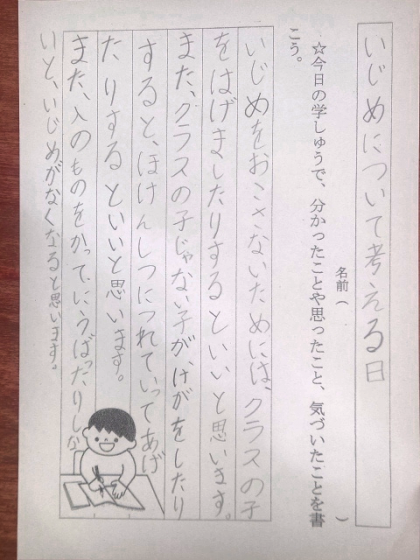 いじめについて考える日
名前（　　　）
☆今日の学しゅうで、分かったことや思ったこと、気づいたことを書
こう。
いじめをおこさないためには、クラスの子
をはげましたりするといいと思います。
また、クラスの子じゃない子が、けがをしたり
すると、ほけんしつにつれていってあげ
たりするといいと思います。
また、人のものをかってにうばったりしな
いと、いじめがなくなると思います。